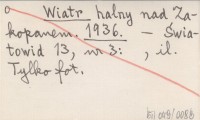 o Wiatr halny nad Za-
kopanem. 1936. — Świa-
towid 13, nr 3: , il.
Tylko fot.